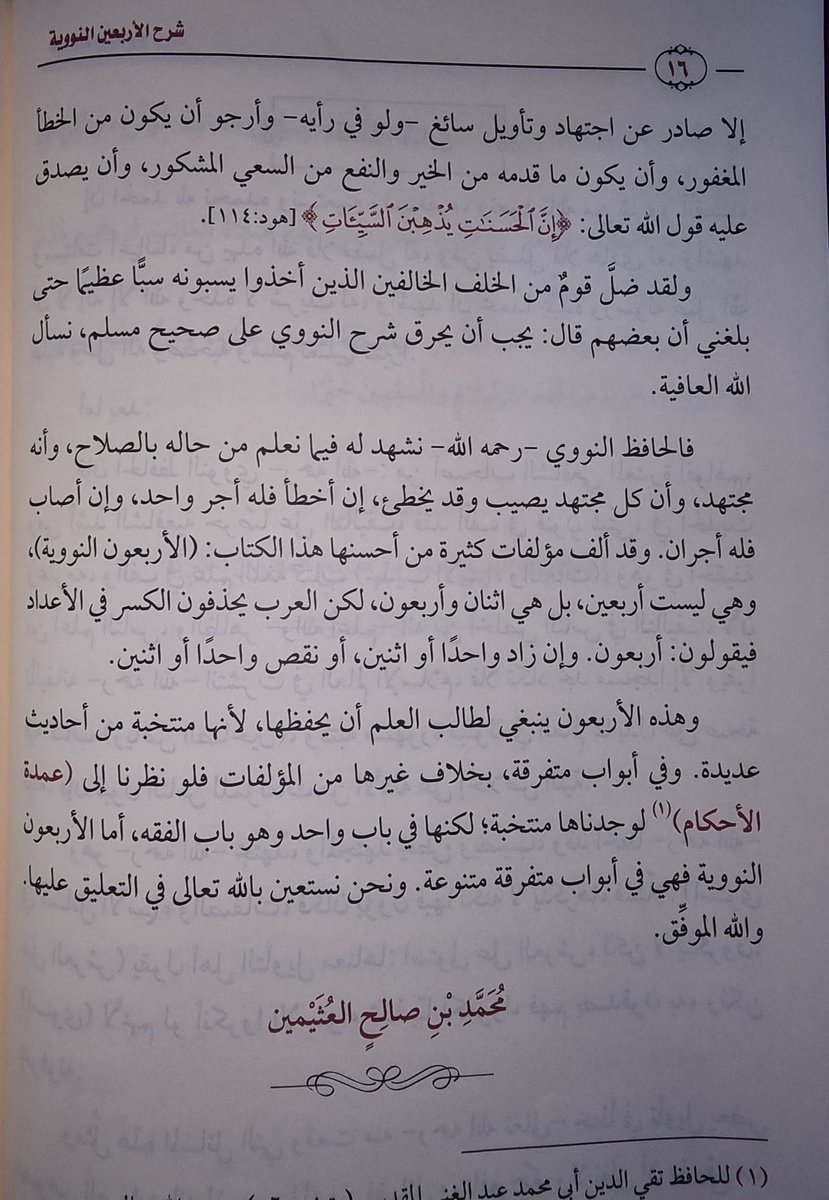 شرح الأربعين النووية
١٦
إلا صادر عن اجتهاد وتأويل سائغ -ولو في رأيه- وأرجو أن يكون من الخطأ
المغفور، وأن يكون ما قدمه من الخير والنفع من السعي المشكور، وأن يصدق
عليه قول الله تعالى: ﴿إِنَّ ٱلْحَسَنَٰتِ يُذْهِبْنَ ٱلسَّيِّـَٔاتِ﴾ [هود:١١٤].
ولقد ضلَّ قومٌ من الخلف الخالفين الذين أخذوا يسبونه سبًّا عظيمًا حتى
بلغني أن بعضهم قال: يجب أن يحرق شرح النووي على صحيح مسلم، نسأل
الله العافية.
فالحافظ النووي -رحمه الله- نشهد له فيما نعلم من حاله بالصلاح، وأنه
مجتهد، وأن كل مجتهد يصيب وقد يخطئ، إن أخطأ فله أجر واحد، وإن أصاب
فله أجران. وقد ألف مؤلفات كثيرة من أحسنها هذا الكتاب: (الأربعون النووية)،
وهي ليست أربعين، بل هي اثنان وأربعون، لكن العرب يحذفون الكسر في الأعداد
فيقولون: أربعون. وإن زاد واحدًا أو اثنين، أو نقص واحدًا أو اثنين.
وهذه الأربعون ينبغي لطالب العلم أن يحفظها، لأنها منتخبة من أحاديث
عديدة. وفي أبواب متفرقة، بخلاف غيرها من المؤلفات فلو نظرنا إلى (عمدة
الأحكام)(١) لوجدناها منتخبة؛ لكنها في باب واحد وهو باب الفقه، أما الأربعون
النووية فهي في أبواب متفرقة متنوعة. ونحن نستعين بالله تعالى في التعليق عليها.
والله الموفِّق.
مُحَمَّدِ بْنِ صالِحٍ العُثَيْمين
(١) للحافظ تقي الدين أبي محمد عبد الغني